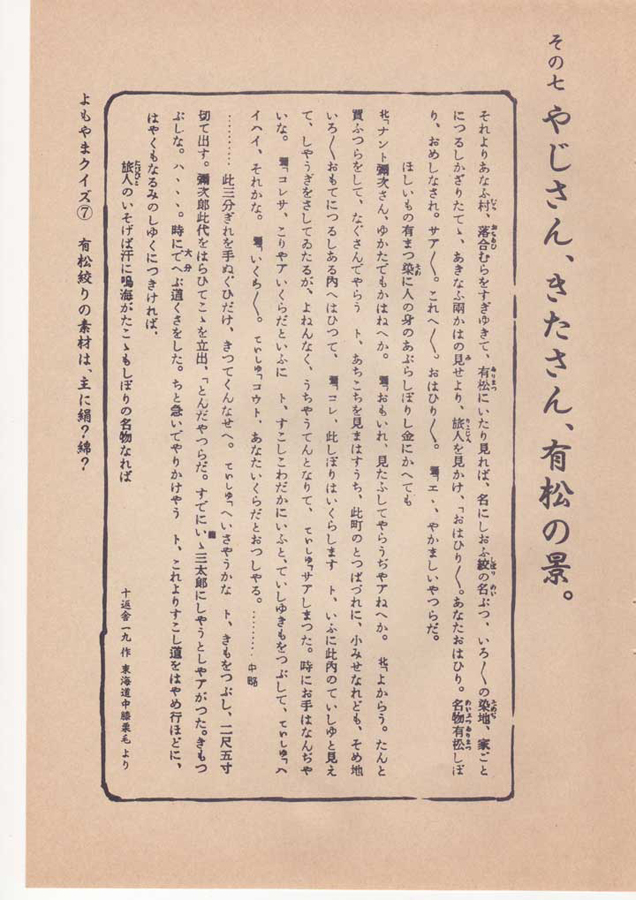 その七 やじさん、きたさん、有松の景。
それよりあなふ村、落合むらをすぎゆきて、有松にいたり見れば、名にしおふ絞の名ぶつ、いろ〳〵の染地、家ごと
につるしかざりたてゝ、あきなふ両かはの見せより、旅人を見かけ、「おはひり〳〵。あなたおはひり。名物有松しぼ
り、おめしなされ。サア〳〵。これへ〳〵。おはひり〳〵。彌「エヽ、やかましいやつらだ。
ほしいもの有まつ染に人の身のあぶらしぼりし金にかへても
北「ナント彌次さん、ゆかたでもかはねへか。彌「おもいれ、見たふしてやらうぢやアねへか。北「よからう。たんと
買ふつらをして、なぐさんでやらう ト、あちこちを見まはすうち、此町のとつぱづれに、小みせなれども、そめ地
いろ〳〵おもてにつるしある内へはひつて、彌「コレ、此しぼりはいくらします ト、いふに此内のていしゆと見え
て、しやうぎをさしてゐたるが、よねんなく、うちやうてんとなりて、ていしゆ「サアしまつた。時にお手はなんぢや
いな。彌「コレサ、こりやアいくらだといふに ト、すこしこわだかにいふと、ていしゆきもをつぶして、ていしゆ「ハ
イハイ、それかな。彌「いくら〳〵。ていしゆ「コウト、あなたいくらだとおつしやる。………中略
………此三分ぎれを手ぬぐひだけ、きつてくんなせへ。ていしゆ「へいさやうかな ト、きもをつぶし、二尺五寸
切て出す。彌次郎此代をはらひてこゝを立出、「とんだやつらだ。すでにいゝ三太郎にしやうとしやアがつた。きもつ
ぶしな。ハヽヽヽ。時にでへぶ道くさをした。ちと急いでやりかけやう ト、これよりすこし道をはやめ行ほどに、
はやくもなるみのしゆくにつきければ、
旅人のいそげば汗に鳴海がたこゝもしぼりの名物なれば
十返舎一九 作 東海道中膝栗毛 より
よもやまクイズ⑦ 有松絞りの素材は、主に絹?綿?